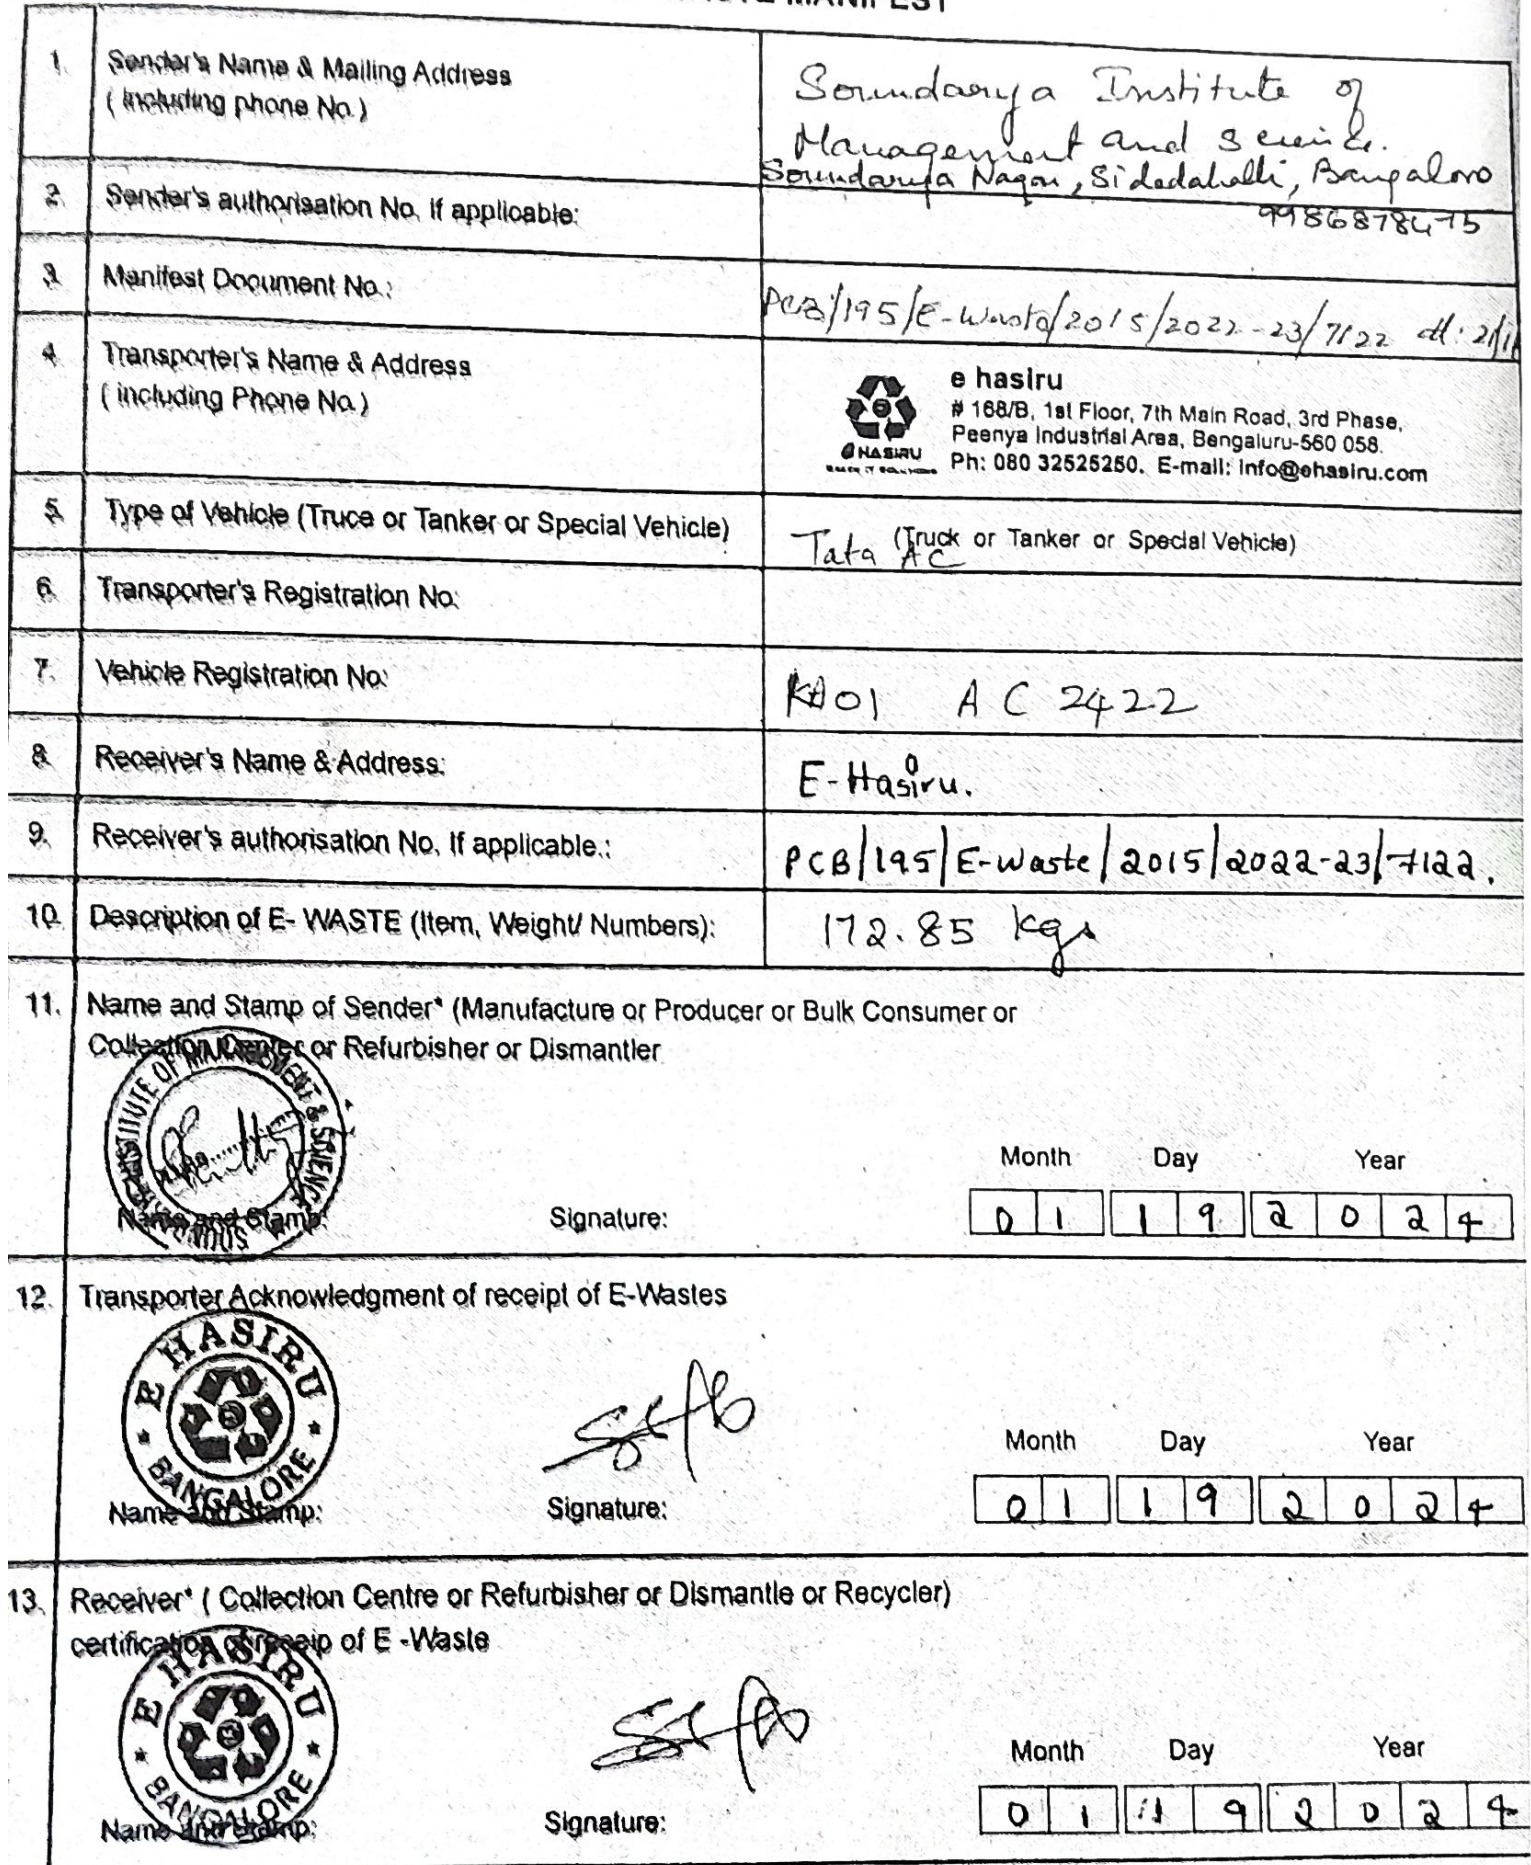 MANIFEST
1. Sender's Name & Mailing Address
( Including phone No.)
Soundarya Institute of
Management and Science.
Soundarya Nagar, Sidedahalli, Bangalore
9986878475
2. Sender's authorisation No. If applicable:
3. Manifest Document No.:
PCB/195/E-Waste/2015/2022-23/7122 dt: 21/11
4 Transporter's Name & Address
( including Phone No.)
HASIRU
e hasiru
# 168/B, 1st Floor, 7th Main Road, 3rd Phase,
Peenya Industrial Area, Bengaluru-560 058.
Ph: 080 32525250. E-mail: info@ehasiru.com
5. Type of Vehicle (Truce or Tanker or Special Vehicle)
(Truck or Tanker or Special Vehicle)
Tata AC
6. Transporter's Registration No:
7. Vehicle Registration No:
KA01 AC 2422
8. Receiver's Name & Address:
E-Hasiru.
9. Receiver's authorisation No. If applicable.:
PCB/195/E-Waste/2015/2022-23/7122.
10. Description of E- WASTE (Item, Weight/ Numbers):
172.85 kgs
11. Name and Stamp of Sender* (Manufacture or Producer or Bulk Consumer or
Collection Center or Refurbisher or Dismantler
INSTITUTE OF MANAGEMENT & SCIENCE
Month Day Year
01 19 2024
Name and Stamp: Signature:
12. Transporter Acknowledgment of receipt of E-Wastes
E HASIRU
BANGALORE
Month Day Year
01 19 2024
Name and Stamp: Signature:
13. Receiver* ( Collection Centre or Refurbisher or Dismantle or Recycler)
certification of receip of E -Waste
E HASIRU
BANGALORE
Month Day Year
01 19 2024
Name and Stamp: Signature: